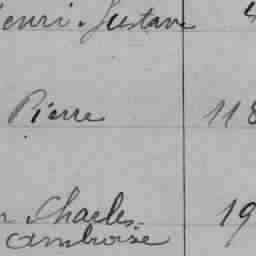 Henri Gustave
Pierre 118
Charles 19
Ambroise